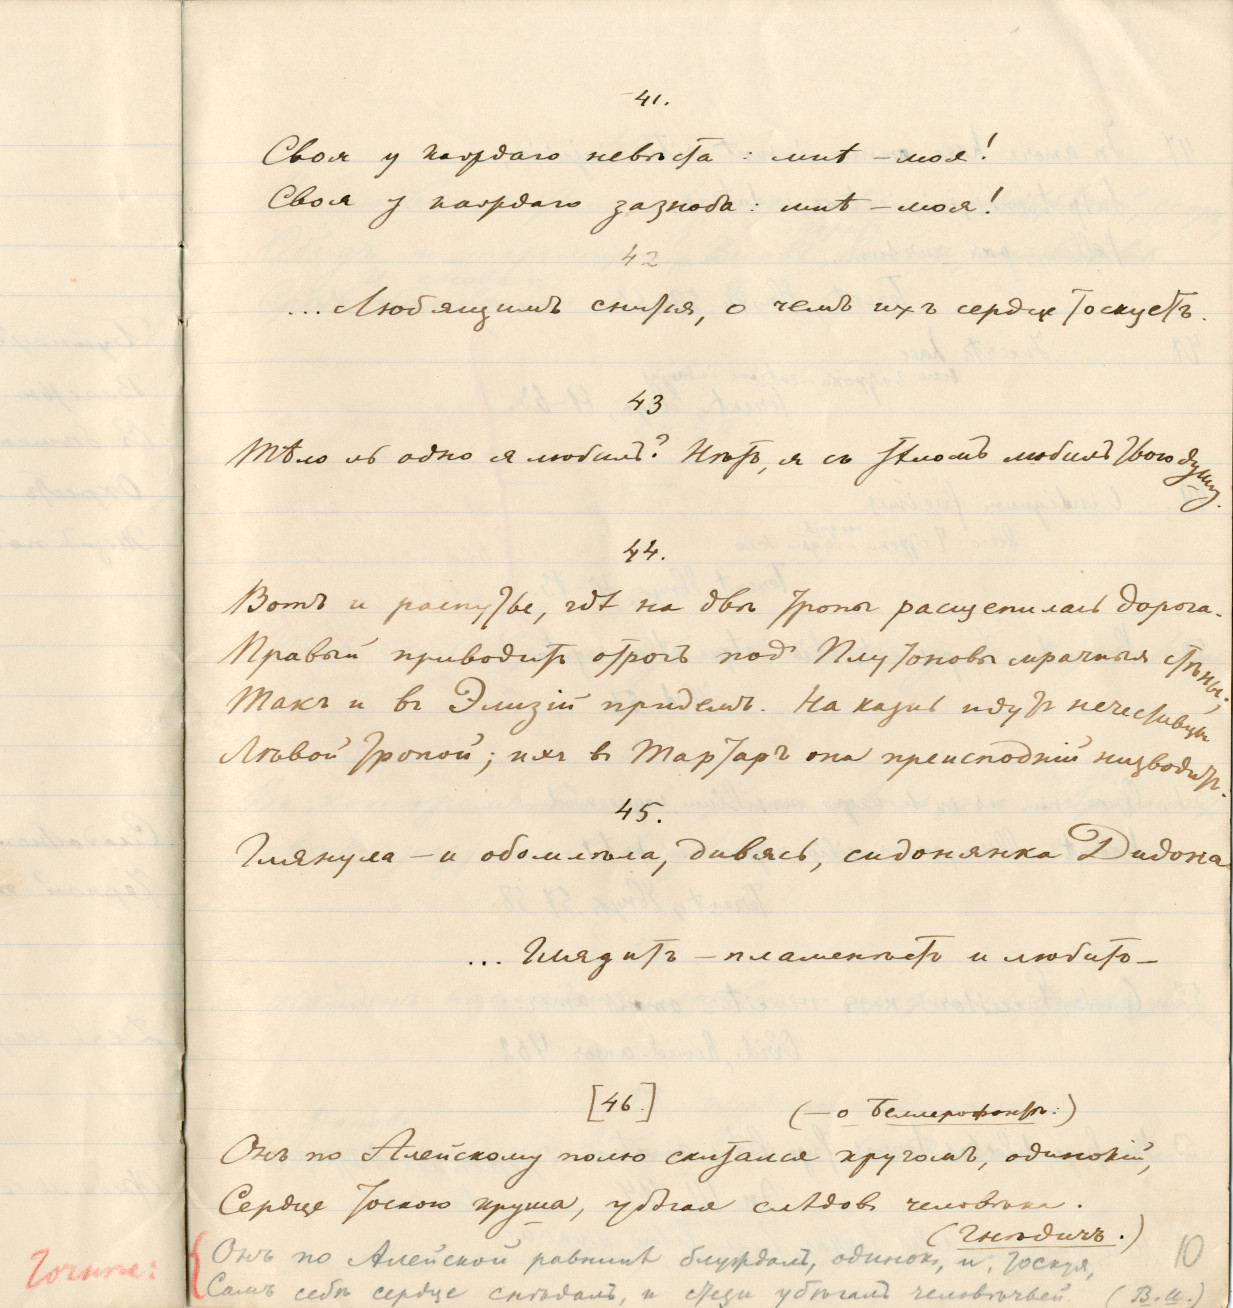 41.
Своя у каждаго невѣста: мнѣ – моя!
Своя у каждаго зазноба: мнѣ – моя!
42
... Любящимъ снится, о чемъ ихъ сердце тоскуетъ.
43
Тѣло ль одно я любилъ? Нѣтъ, я съ тѣломъ любилъ твою душу.
44.
Вотъ и распутье, гдѣ на двѣ тропы расщепилась дорога.
Правый приводитъ отрогъ под Плутоновы мрачныя стѣны;
Такъ и въ Элизій придемъ. На казнь идутъ нечестивцы
Лѣвой тропой; ихъ въ Тартаръ она преисподній низводитъ.
45.
Глянула – и обомлѣла, дивясь, сидонянка Дидона
... Глядитъ – пламенѣетъ и любитъ –
[46.]
(– о Беллерофонтѣ:)
Онъ по Алейскому полю скитался кругомъ, одинокій,
Сердце тоскою круша, убѣгая слѣдовъ человѣка.
(Гнѣдичъ.)
Точнѣе:
Онъ по Алейской равнинѣ блуждалъ, одинок, и, тоскуя,
Самъ себѣ сердце снѣдалъ, и стези убѣгалъ человѣчьей. (В. И.)
10